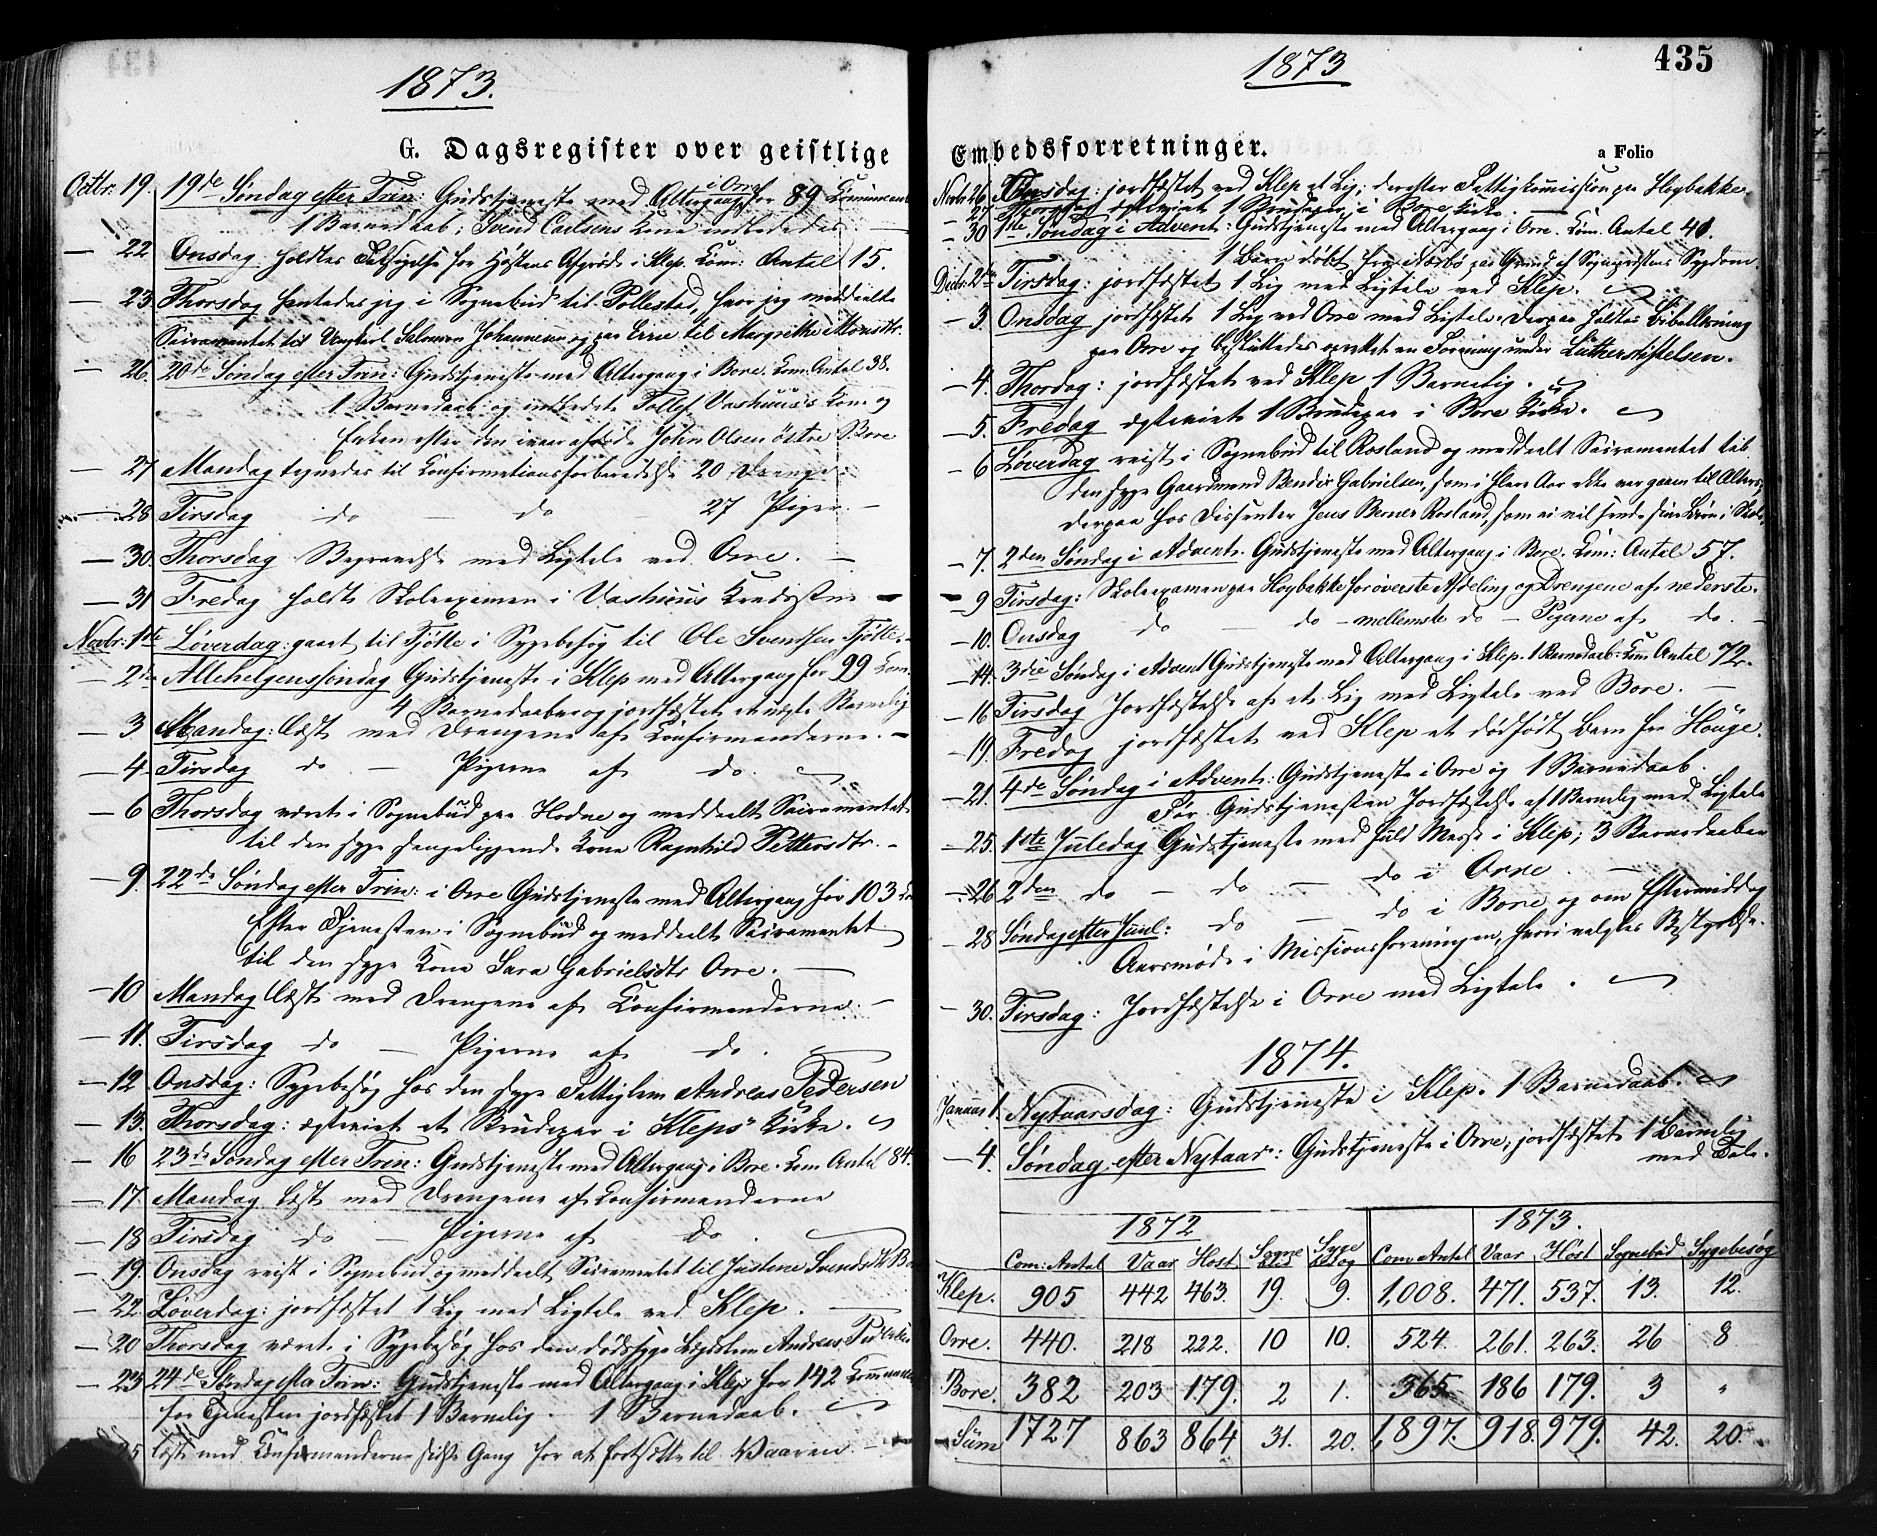 1873.
G. Dagsregister over geistlige
Octbr: 19. 19de Søndag efter Trin: Gudstjeneste med Altergang i Orre for 89
1 Barnedaab; Svend Carlsens Kone indlededes
— 22 Onsdag holdtes Taksigelse for Høstens Afgrøde i Klep. Com: Antal 15.
— 23. Thorsdag hentedes jeg i Sognebud til Pollestad, hvor jeg meddeelte
Sacramentet til Salomon Johannesen og paa til Margrethe
— 26. 20de Søndag efter Trin: Gudstjeneste med Altergang i Bore. Com. Antal 38.
1 Barnedaab og indledede Tollef Vashuus's Kone og
Enken efter den John Olsen østre Bore
— 27 Mandag tegnedes til Confirmationsforberedelse 20 Drenge
— 28 Tirsdag do — do — 27 Piger —
— 30. Thorsdag Begravelse med Ligtale ved Orre. —
— 31 Fredag holdt Skoleexamen i Vashuus Kredsstue —
Novbr: 1ste Løverdag: gaaet til Tjøtte i Sygebesøg til Ole Svendsen Tjøtte. —
— 2den Allehelgenssøndag Gudstjeneste i Klep med Altergang for 99 Com.
4 Barnedaaber og jordfæstet et Barnelig
— 3 Mandag: læst med Drengene af Confirmanderne. —
— 4 Tirsdag do — Pigerne af do.
— 6 Thorsdag været i Sognebud paa Hodne og meddeelt Sacramentet
til den syge sengeliggende Kone Ragnhild Pettersdtr. —
— 9. 22de Søndag efter Trin: i Orre Gudstjeneste med Altergang for 103
Efter Tjenesten i Sognebud og meddeelt Sacramentet
til den syge Kone Sara Gabrielsdtr Orre. —
— 10 Mandag læst med Drengene af Confirmanderne. —
— 11. Tirsdag do — Pigerne af do.
— 12 Onsdag: Sygebesøg hos den syge Fattiglem Andreas Pedersen
— 13. Thorsdag: ægteviet et Brudepar i Kleps Kirke.
— 16 23de Søndag efter Trin: Gudstjeneste med Altergang i Bore. Com. Antal 84.
— 17. Mandag læst med Drengene af Confirmanderne
— 18 Tirsdag do — Pigerne af do.
— 19. Onsdag reist i Sognebud og meddeelt Sacramentet til Justine Svendsdtr
— 22. Løverdag: jordfæstet 1 Lig med Ligtale ved Klep.
— 20 Thorsdag været i Sygebesøg hos den dødssyge Lægdslem Andreas
— 23 24de Søndag efter Trin: Gudstjeneste med Altergang i Klep for 142
før Tjenesten jordfæstet 1 Barnelig. 1 Barnedaab.
25 læste med Confirmanderne sidste Gang for at fortsætte til Vaaren —
1873
435
Embedsforretninger.
a Folio
Novbr 26 Onsdag: jordfæstet ved Klep et Lig; derefter Fattigkommission paa Hogbakke.
— 27 Thorsdag ægteviet 1 Brudepar i Bore Kirke.
— 30 1ste Søndag i Advent: Gudstjeneste med Altergang i Orre. Com. Antal 41.
1 Barn døbt fra Nærbø paa Grund af Sognepræstens Sygdom.
Decbr: 2den Tirsdag: jordfæstet 1 Lig med Ligtale ved Klep.
— 3. Onsdag jordfæstet 1 Lig ved Orre med Ligtale. Derpaa holdtes Bibellæsning
paa Orre og besluttedes oprettet en Forening under Lutherstiftelsen.
— 4. Thordag: jordfæstet ved Klep 1 Barnelig.
— 5. Fredag ægteviet 1 Brudepar i Bore Kirke.
— 6 Løverdag reist i Sognebud til Rosland og meddeelt Sacramentet til
den syge Gaardmand Bendix Gabrielsen, som i flere Aar ikke var gaaen til Alters,
derpaa hos Dissenter Jens Berner Rosland, som ei vil sende sine Børn i Skole.
— 7. 2den Søndag i Advent. Gudstjeneste med Altergang i Bore. Com: Antal 57.
— 9 Tirsdag: Skoleexamen paa Hogbakke for øverste Afdeling og Drengene af nederste.
— 10. Onsdag do — do — mellemste do — Pigerne af do.
— 14. 3die Søndag i Advent Gudstjeneste med Altergang i Klep. 1 Barnedaab. Com Antal 72.
— 16 Tirsdag Jordfæstelse af et Lig med Ligtale ved Bore. —
— 19. Fredag jordfæstet ved Klep et dødfødt Barn fra Höuge.
— 21. 4de Søndag i Advent: Gudstjeneste i Orre og 1 Barnedaab.
Før Gudstjenesten Jordfæstelse af 1 Barnelig med Ligtale
— 25. 1ste Juledag Gudstjeneste med fuld Messe i Klep; 3 Barnedaaber
— 26 2den do — do — do i Orre. —
— 28 Søndag efter Juul: do — do i Bore og om Eftermiddag
Aarsmøde i Missionsforeningen, hvori valgtes Bestyrelse.
— 30. Tirsdag: Jordfæstelse i Orre med Ligtale.
1874.
Januar 1. Nytaarsdag: Gudstjeneste i Klep. 1 Barnedaab.
— 4. Søndag efter Nytaar: Gudstjeneste i Orre, jordfæstet 1 Barnelig
med Tale.
1872 1873.
Com: Antal Vaar Høst Sogne bud Syge besøg Com Antal Vaar Høst Sognebud Sygebesøg
Klep. 905 442 463. 19. 9. 1,008. 471. 537. 13. 12.
Orre. 440. 218 222. 10 10. 524. 261. 263. 26 8
Bore. 382 203 179. 2 1. 365 186 179. 3 "
Sum 1727 863 864 31. 20. 1,897. 918. 979. 42. 20.